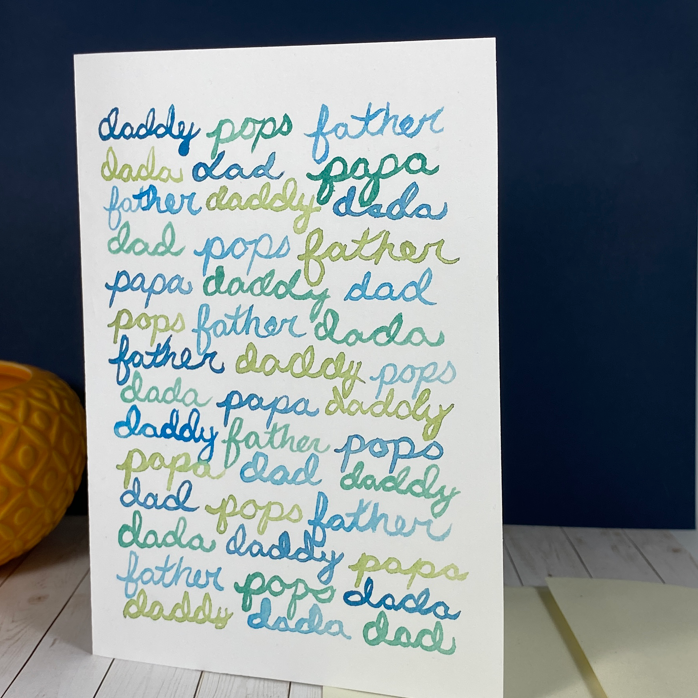 daddy pops father
dada dad papa
father daddy dada
dad pops father
papa daddy dad
pops father dada
father daddy pops
dada papa daddy
daddy father pops
papa dad daddy
dad pops father
dada daddy papa
father pops dada
daddy dada dad